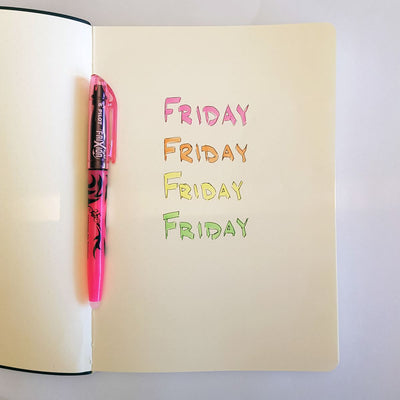 PILOT FRIXION
FRIDAY
FRIDAY
FRIDAY
FRIDAY